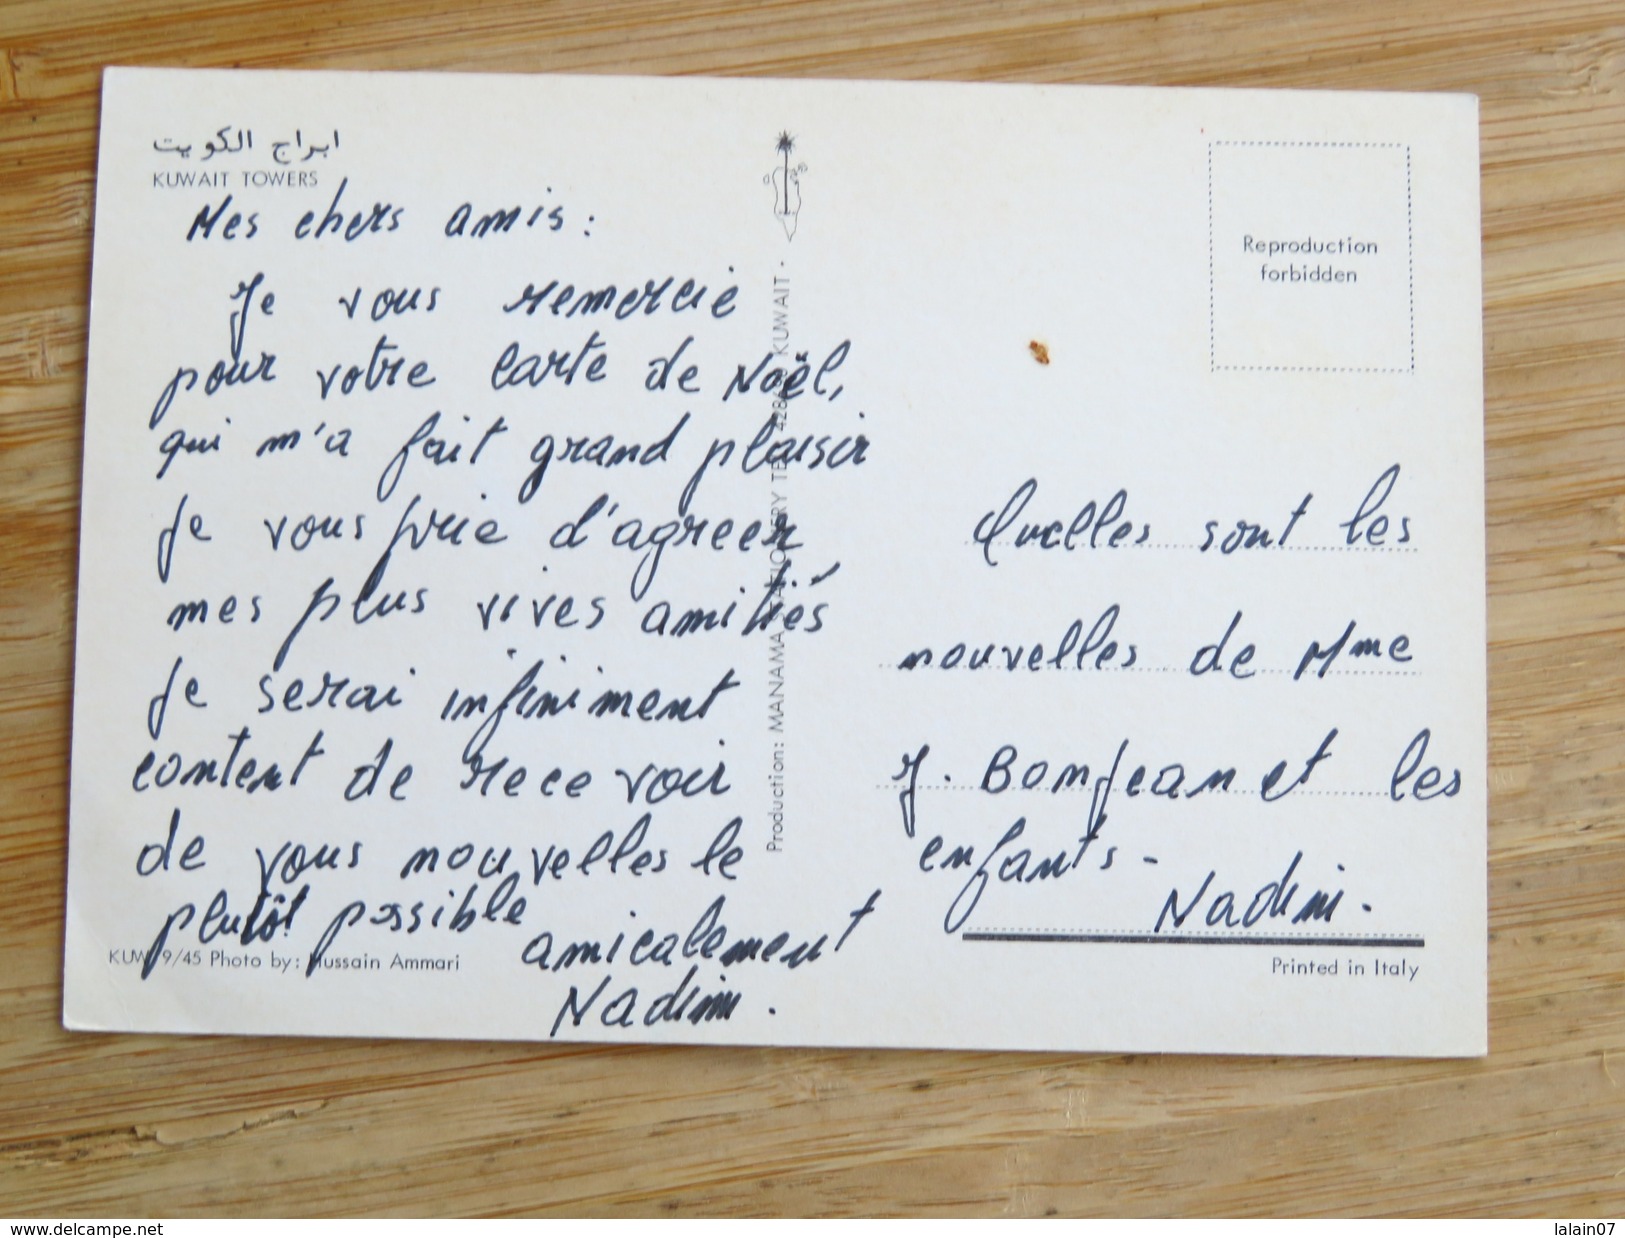 ابراج الكويت
KUWAIT TOWERS
Mes chers amis :
Je vous remercie
pour votre carte de Noël,
qui m'a fait grand plaisir
Je vous prie d'agreer
mes plus vives amitiés
Je serai infiniment
content de recevoir
de vous nouvelles le
plutôt possible
amicalement
Nadim.
KUW 9/45 Photo by: Hussain Ammari
Production: MANAMA STATIONERY TEL. KUWAIT.
Reproduction
forbidden
Quelles sont les
nouvelles de Mme
J. Bonjean et les
enfants -
Nadim.
Printed in Italy
www.delcampe.net
lalain07